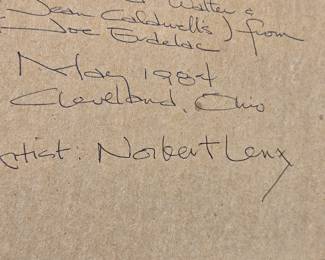 Walter &
Jean Caldwell's) from
Joe Erdelac
May 1984
Cleveland, Ohio
Artist: Norbert Lenz